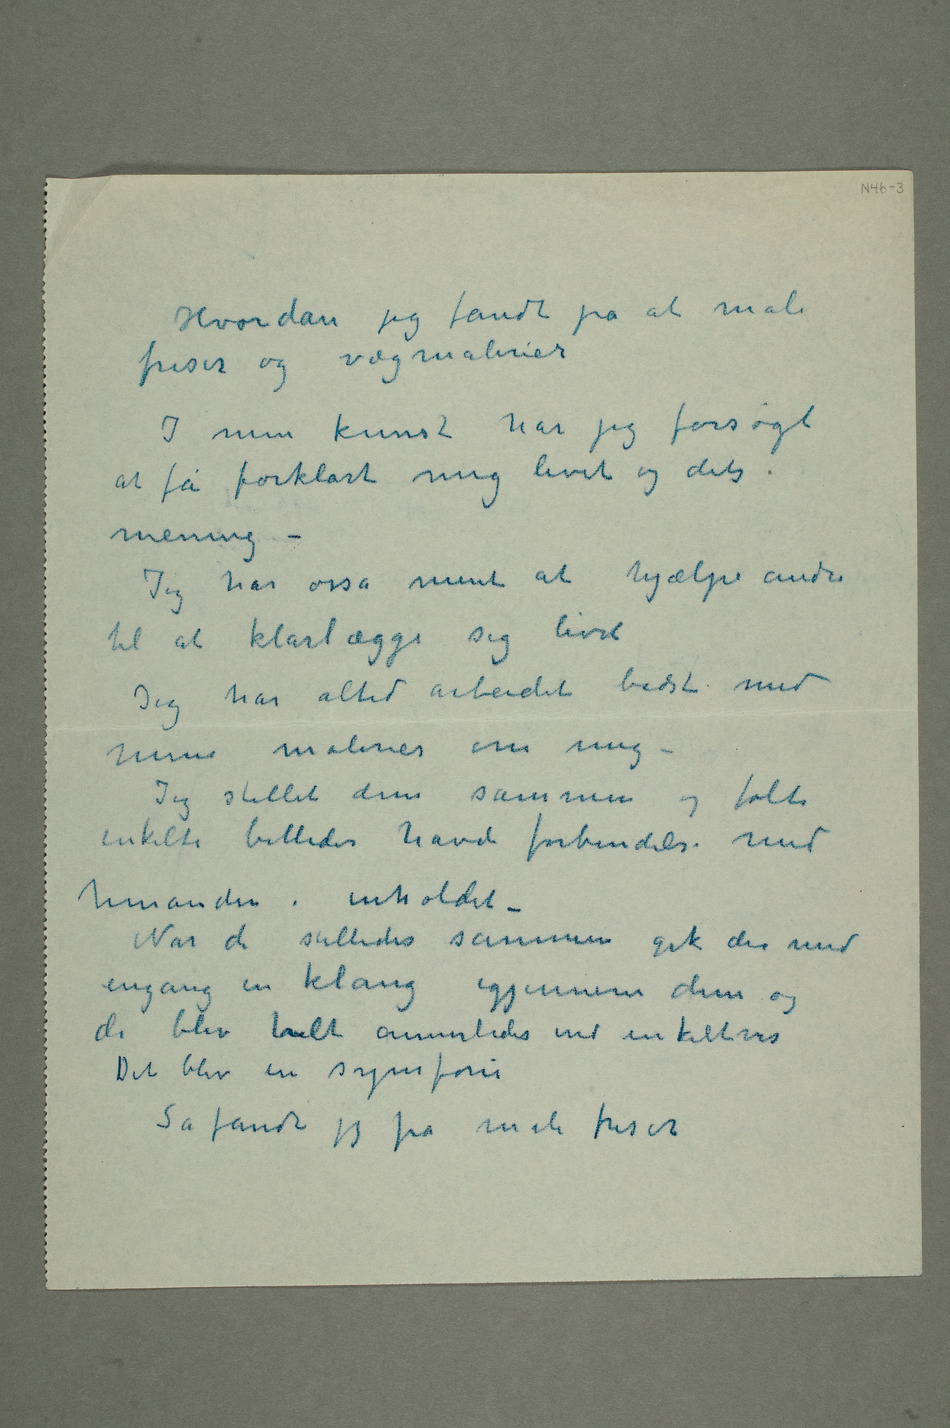 N46-3
Hvordan jeg fandt på at male
friser og vægmalerier
I min kunst har jeg forsøgt
at få forklart mig livet og dets
mening –
Jeg har osså ment at hjælpe andre
til at klarlægge sig livet
Jeg har altid arbeidet bedst med
mine malerier om mig –
Jeg stillet dem sammen og følte
enkelte billeder havde forbindelse med
hinanden i inholdet –
Når de stilledes sammen gik der med
engang en klang igjennem dem og
de blev helt annerledes end enkeltvis
Det blev en symfoni
Så fandt jeg på male friser